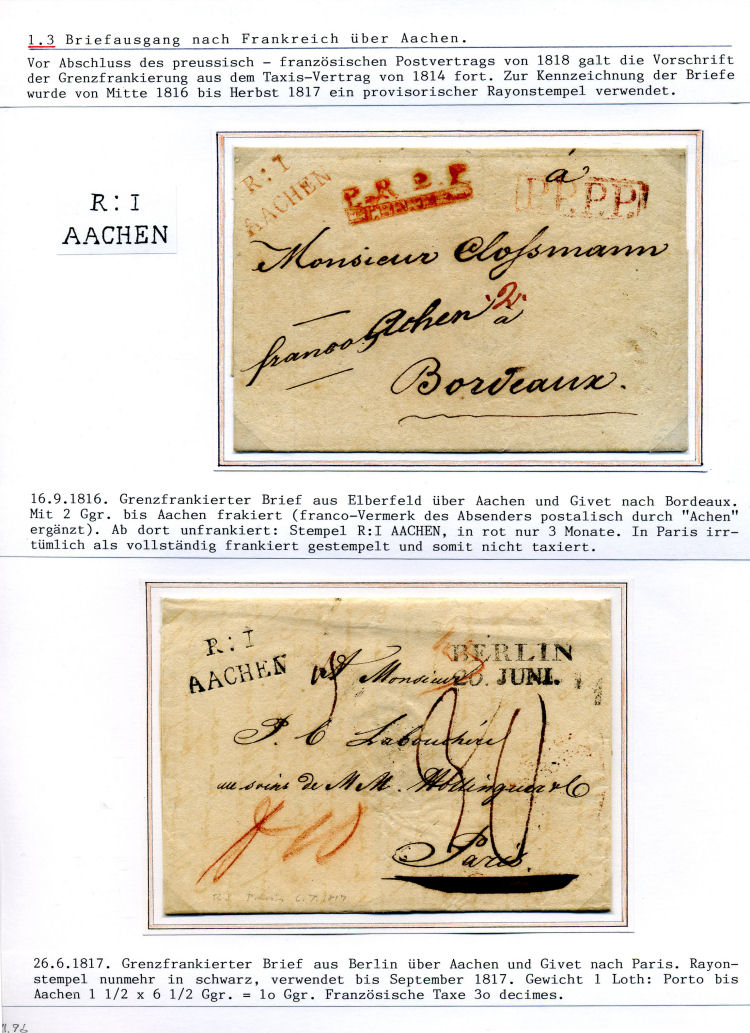 1.3 Briefausgang nach Frankreich über Aachen.
Vor Abschluss des preussisch - französischen Postvertrags von 1818 galt die Vorschrift
der Grenzfrankierung aus dem Taxis-Vertrag von 1814 fort. Zur Kennzeichnung der Briefe
wurde von Mitte 1816 bis Herbst 1817 ein provisorischer Rayonstempel verwendet.
R: I
AACHEN
R: I
AACHEN
P.R 2 P
P.P.P.P.
à
Monsieur Clossmann
franco Achen 2
a
Bordeaux.
16.9.1816. Grenzfrankierter Brief aus Elberfeld über Aachen und Givet nach Bordeaux.
Mit 2 Ggr. bis Aachen frakiert (franco-Vermerk des Absenders postalisch durch "Achen"
ergänzt). Ab dort unfrankiert: Stempel R:I AACHEN, in rot nur 3 Monate. In Paris irr-
tümlich als vollständig frankiert gestempelt und somit nicht taxiert.
R: I
AACHEN
BERLIN
26. JUNI.
A Monsieur
P. C Labouchère
aux soins de M M. Hottinguer & C
Paris.
30
26.6.1817. Grenzfrankierter Brief aus Berlin über Aachen und Givet nach Paris. Rayon-
stempel nunmehr in schwarz, verwendet bis September 1817. Gewicht 1 Loth: Porto bis
Aachen 1 1/2 x 6 1/2 Ggr. = 1o Ggr. Französische Taxe 3o decimes.